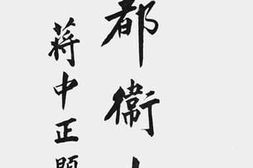 都衛
蔣中正題